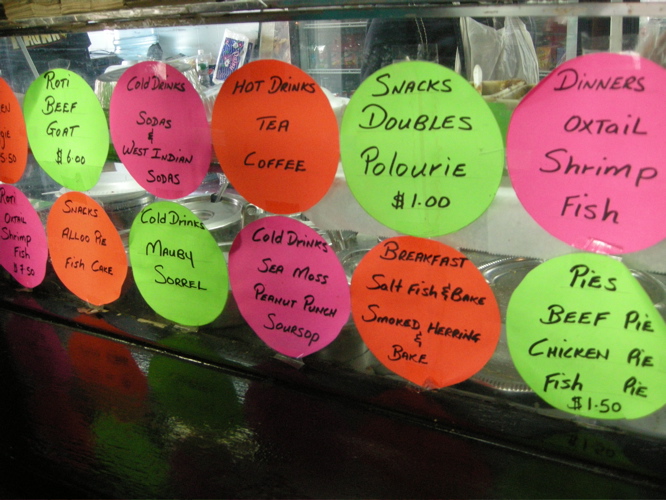 $5.50
ROTI
BEEF
GOAT
$6.00
COLD DRINKS
SODAS
&
WEST INDIAN
SODAS
HOT DRINKS
TEA
COFFEE
SNACKS
DOUBLES
POLOURIE
$1.00
DINNERS
OXTAIL
Shrimp
Fish
ROTI
OXTAIL
Shrimp
Fish
$7.50
SNACKS
ALLOO PIE
FISH CAKE
COLD DRINKS
MAUBY
SORREL
COLD DRINKS
SEA MOSS
PEANUT PUNCH
SOURSOP
BREAKFAST
SALT FISH & BAKE
SMOKED HERRING
&
BAKE
PIES
BEEF PIE
CHICKEN PIE
Fish PIE
$1.50